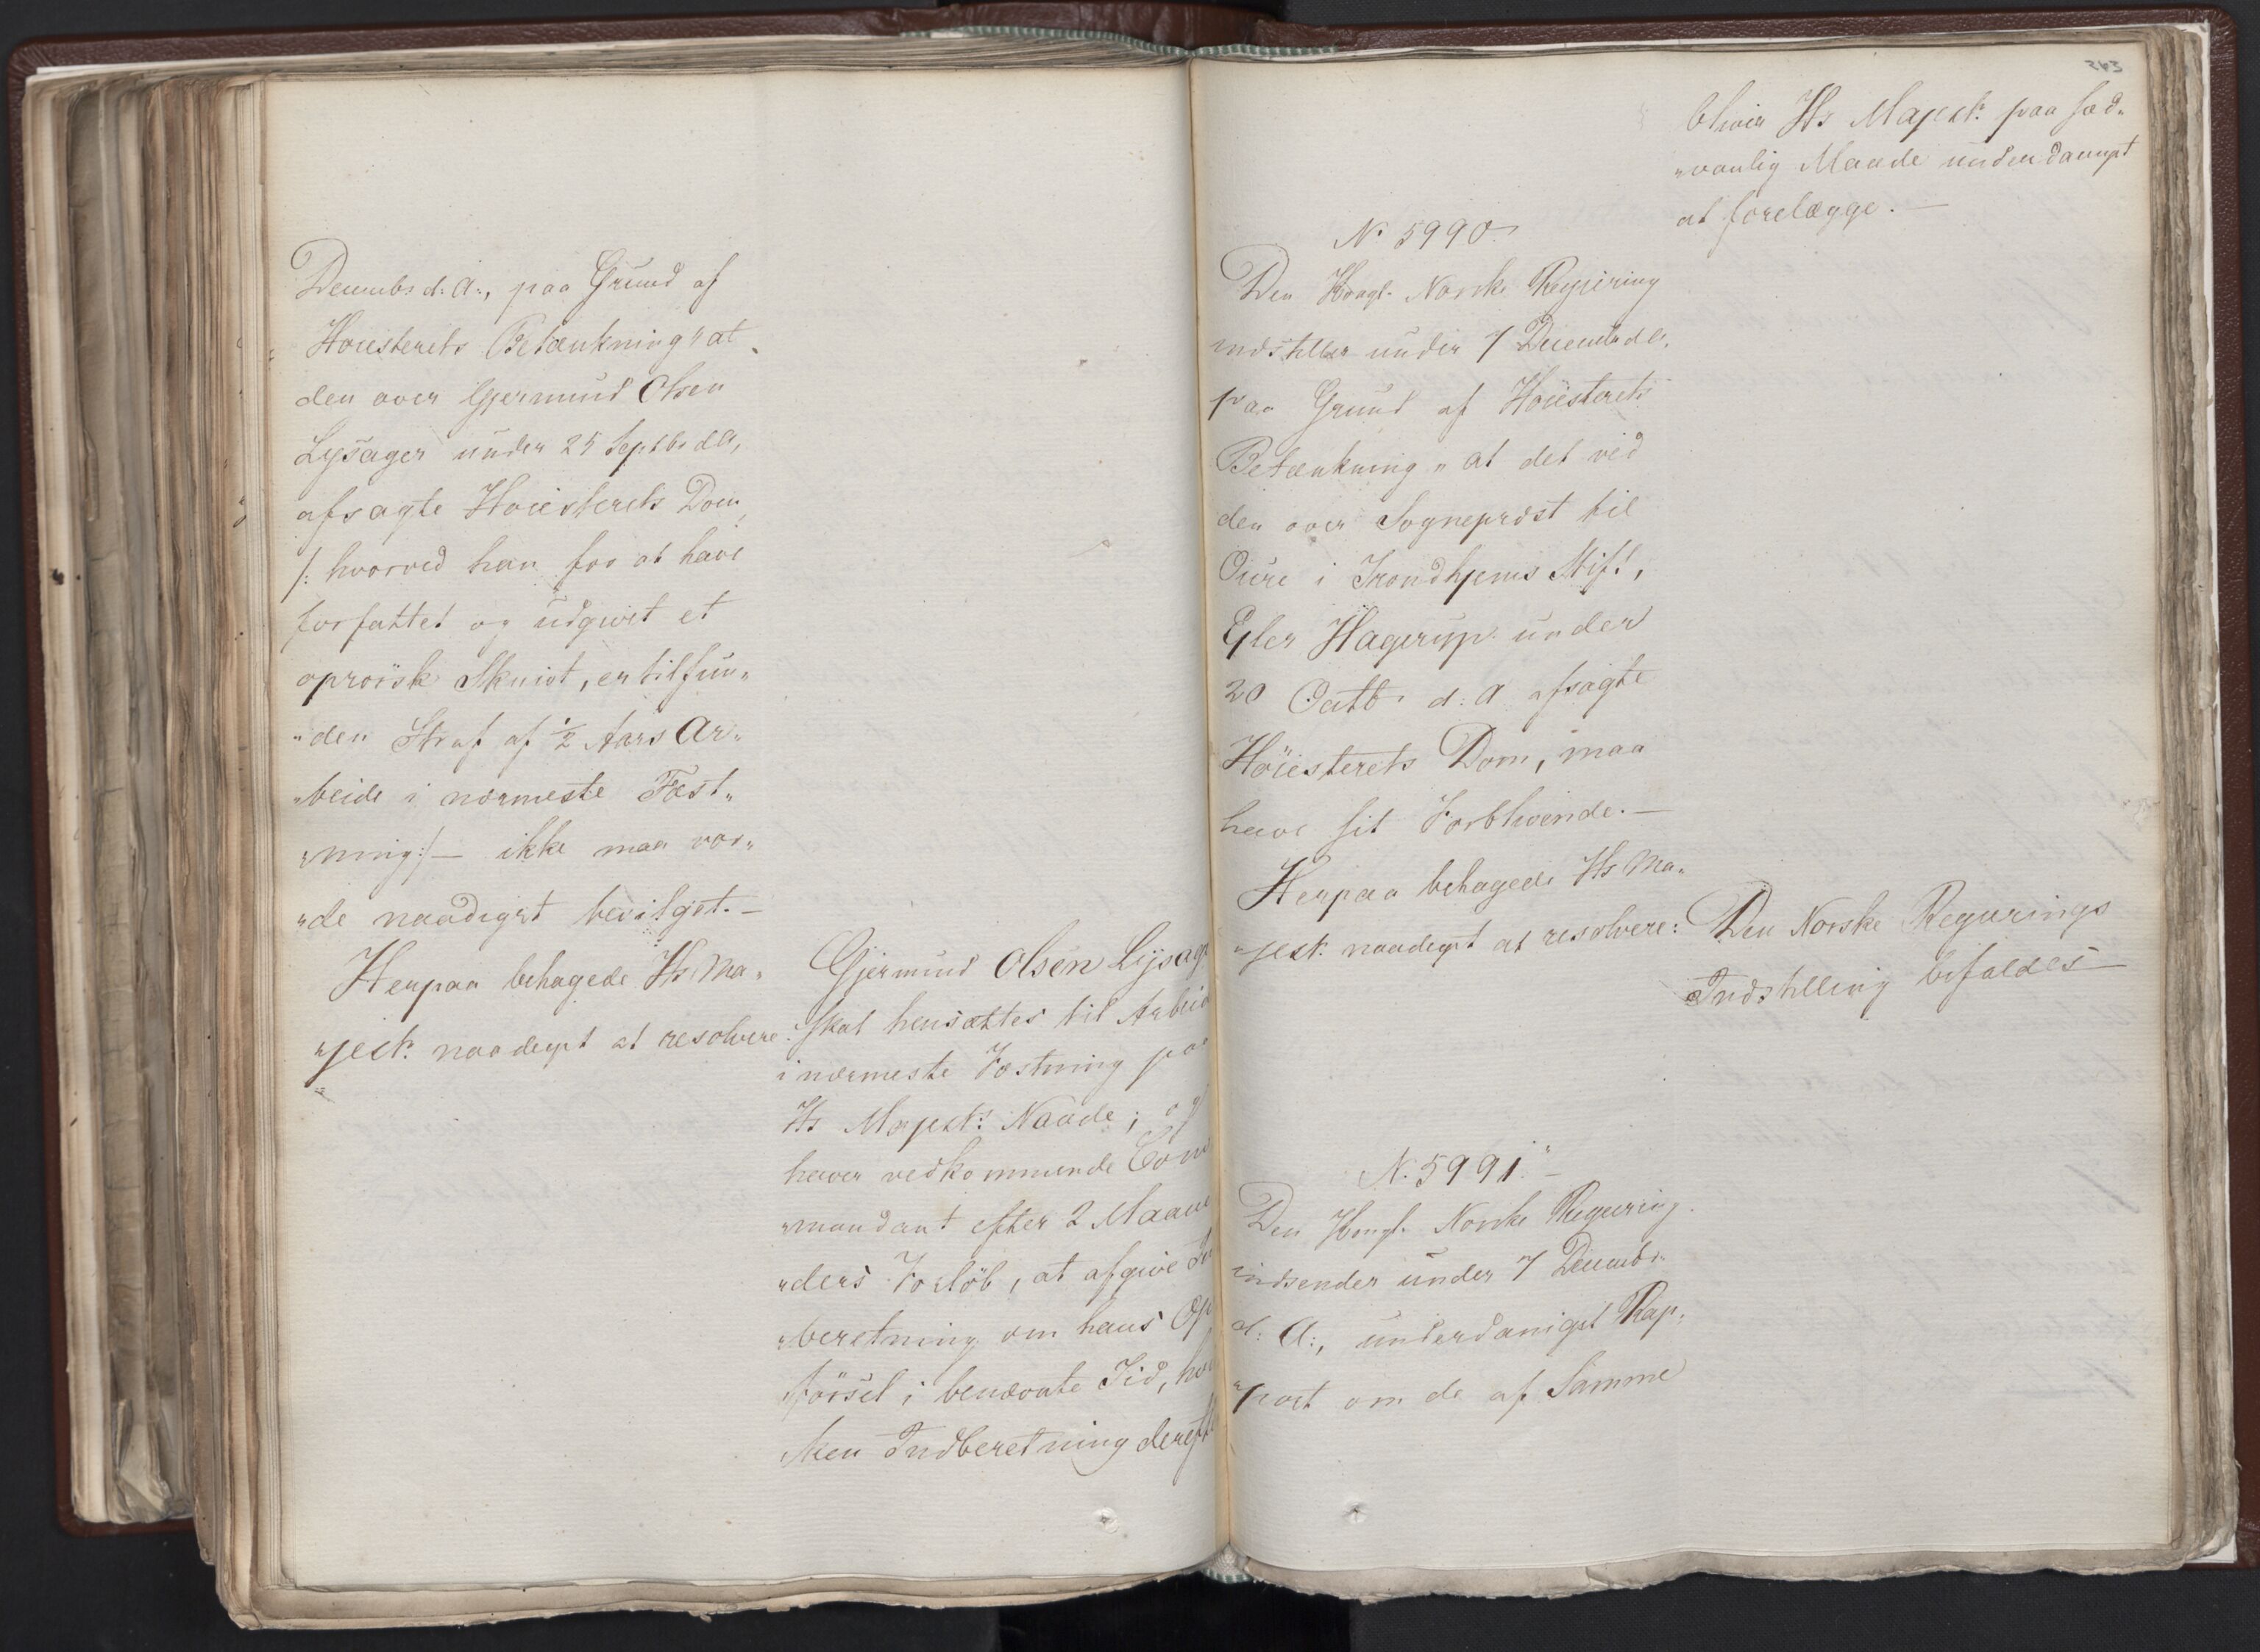 Decembr d: A:, paa Grund af
Høiesterets Betænkning "at
den over Gjermund Olsen
Lysager under 25 Septbr d A,
afsagte Høiesterets Dom,
/: hvorved han for at have
forfattet og udgivet et
oprørsk Skrivt, er tilfun„
„den Straf af ½ Aars Ar„
„beide i nærmeste Fæst„
„ning :/ — ikke maa vor„
„de naadigst bevilget. —
Herpaa behagede Hs Ma„
„jest: naadigst at resolvere:
Gjermund Olsen Lysag
skal hensættes til Arbeid
i nærmeste Fæstning paa
Hs Majest: Naade; og
haver vedkommende Com
„mandant efter 2 Maane
„ders Forløb, at afgive
„beretning om hans Op
førsel i benævnte Tid,
Indberetning dereft
343
bliver Hs Majest: paa sæd„
„vanlig Maade underdanigst
at forelægge. —
No 5990.
Den Kongl. Norske Regiering
indstiller under 7 Decembr d A,
paa Grund af Høiesterets
Betænkning „at det ved
den over Sognepræst til
Oure i Trondhjems Stift,
Eyler Hagerup under
20 Octb. d: A afsagte
Høiesterets Dom, maa
have sit Forblivende. —
Herpaa behagede Hs Ma„
„jest: naadigst at resolvere:
Den Norske Regierings
Indstilling bifaldes —
No. 5991. —
Den Kongl. Norske Regiering
indsender under 7 Decembr.
d: A:, underdanigst Rap„
„port om de af Samme